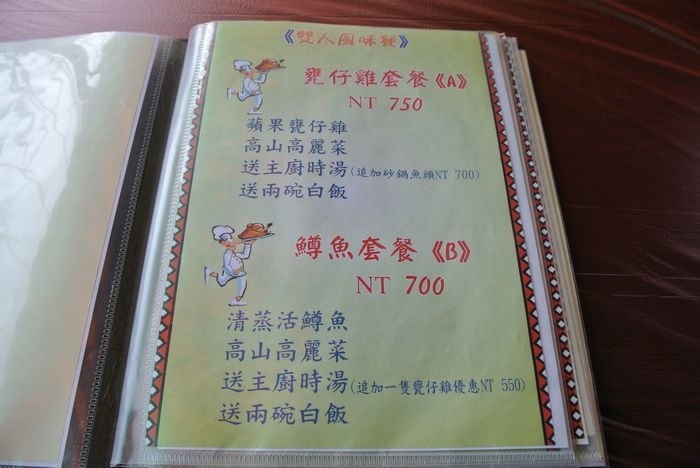 《雙人風味餐》
甕仔雞套餐《A》
NT 750
蘋果甕仔雞
高山高麗菜
送主廚時湯(追加砂鍋魚頭NT 700)
送兩碗白飯
鱒魚套餐《B》
NT 700
清蒸活鱒魚
高山高麗菜
送主廚時湯(追加一隻甕仔雞優惠NT 550)
送兩碗白飯